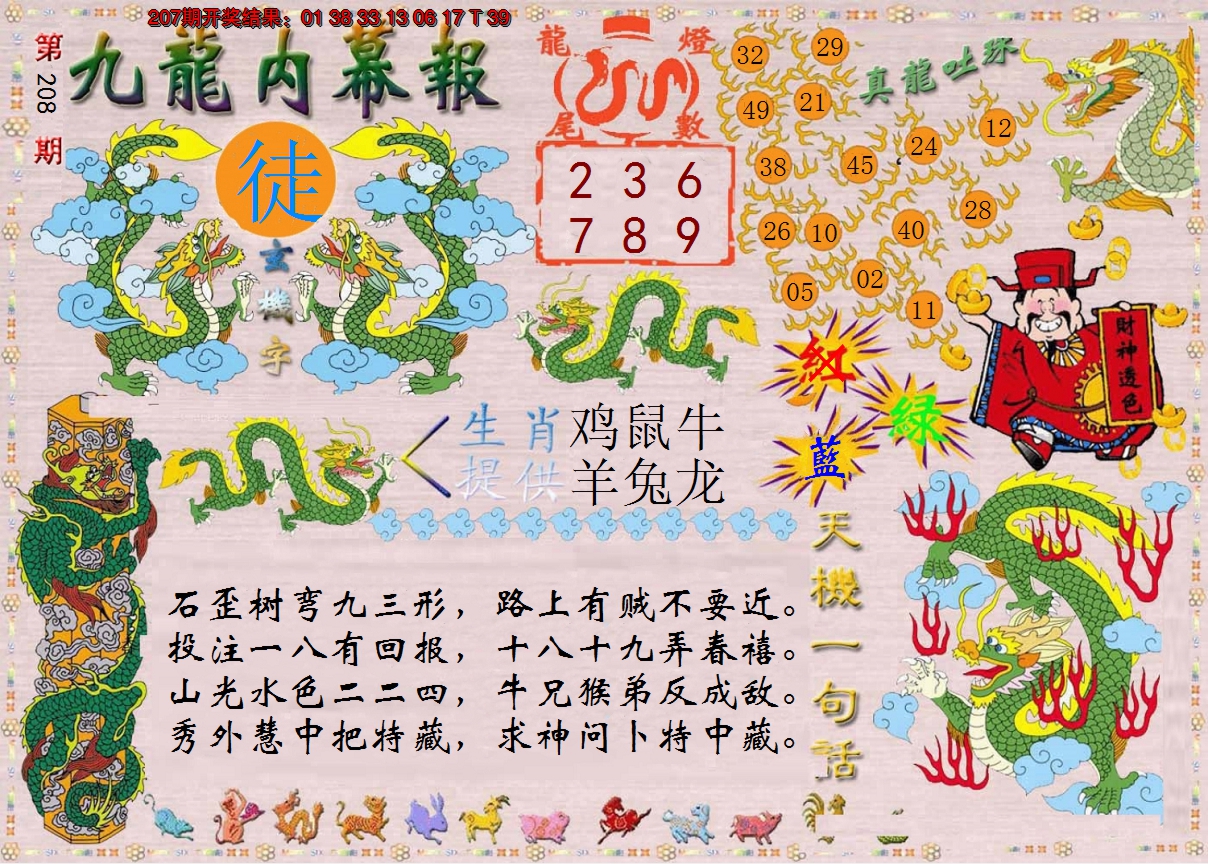 207期开奖结果：01 38 33 13 06 17 T 39
第208期
九龍内幕報
徒
玄機字
龍燈
尾數
2 3 6
7 8 9
真龍吐珠
32 29
49 21
38 45 24 12
26 10 40 28
05 02 11
紅
綠
藍
財神透色
生肖提供
鸡鼠牛
羊兔龙
石歪树弯九三形，路上有贼不要近。
投注一八有回报，十八十九弄春禧。
山光水色二二四，牛兄猴弟反成敌。
秀外慧中把特藏，求神问卜特中藏。
天機一句話